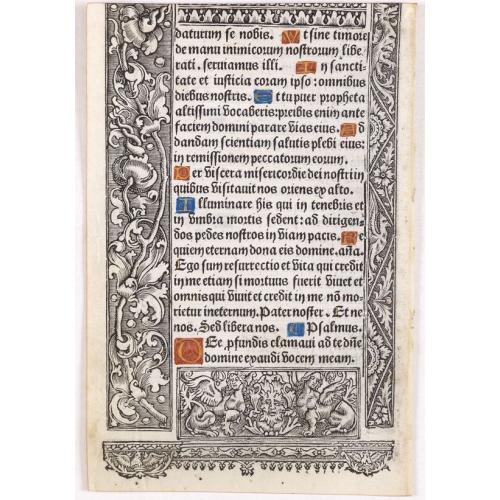 daturum se nobis. Ut sine timore
de manu inimicorum nostrorum libe
rati. seruiamus illi. In sancti-
tate et iusticia coram ipso: omnibus
diebus nostris. Et tu puer propheta
altissimi vocaberis: preibis enim ante
faciem domini parare vias eius. Ad
dandam scientiam salutis plebi eius:
in remissionem peccatorum eorum.
Per viscera misericordie dei nostri in
quibus visitauit nos oriens ex alto.
Illuminare his qui in tenebris et
in vmbra mortis sedent: ad dirigen-
dos pedes nostros in viam pacis. Re
quiem eternam dona eis domine. aña.
Ego sum resurrectio et vita qui credit
in me etiam si mortuus fuerit viuet et
omnis qui viuit et credit in me nō mo-
rietur in eternum. Pater noster. Et ne
nos. Sed libera nos. Psalmus.
De ꝓfundis clamaui ad te dñe
domine exaudi vocem meam.